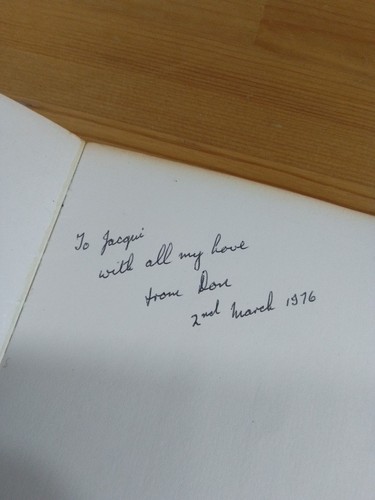 To Jacqui
with all my love
from Don
2nd March 1976